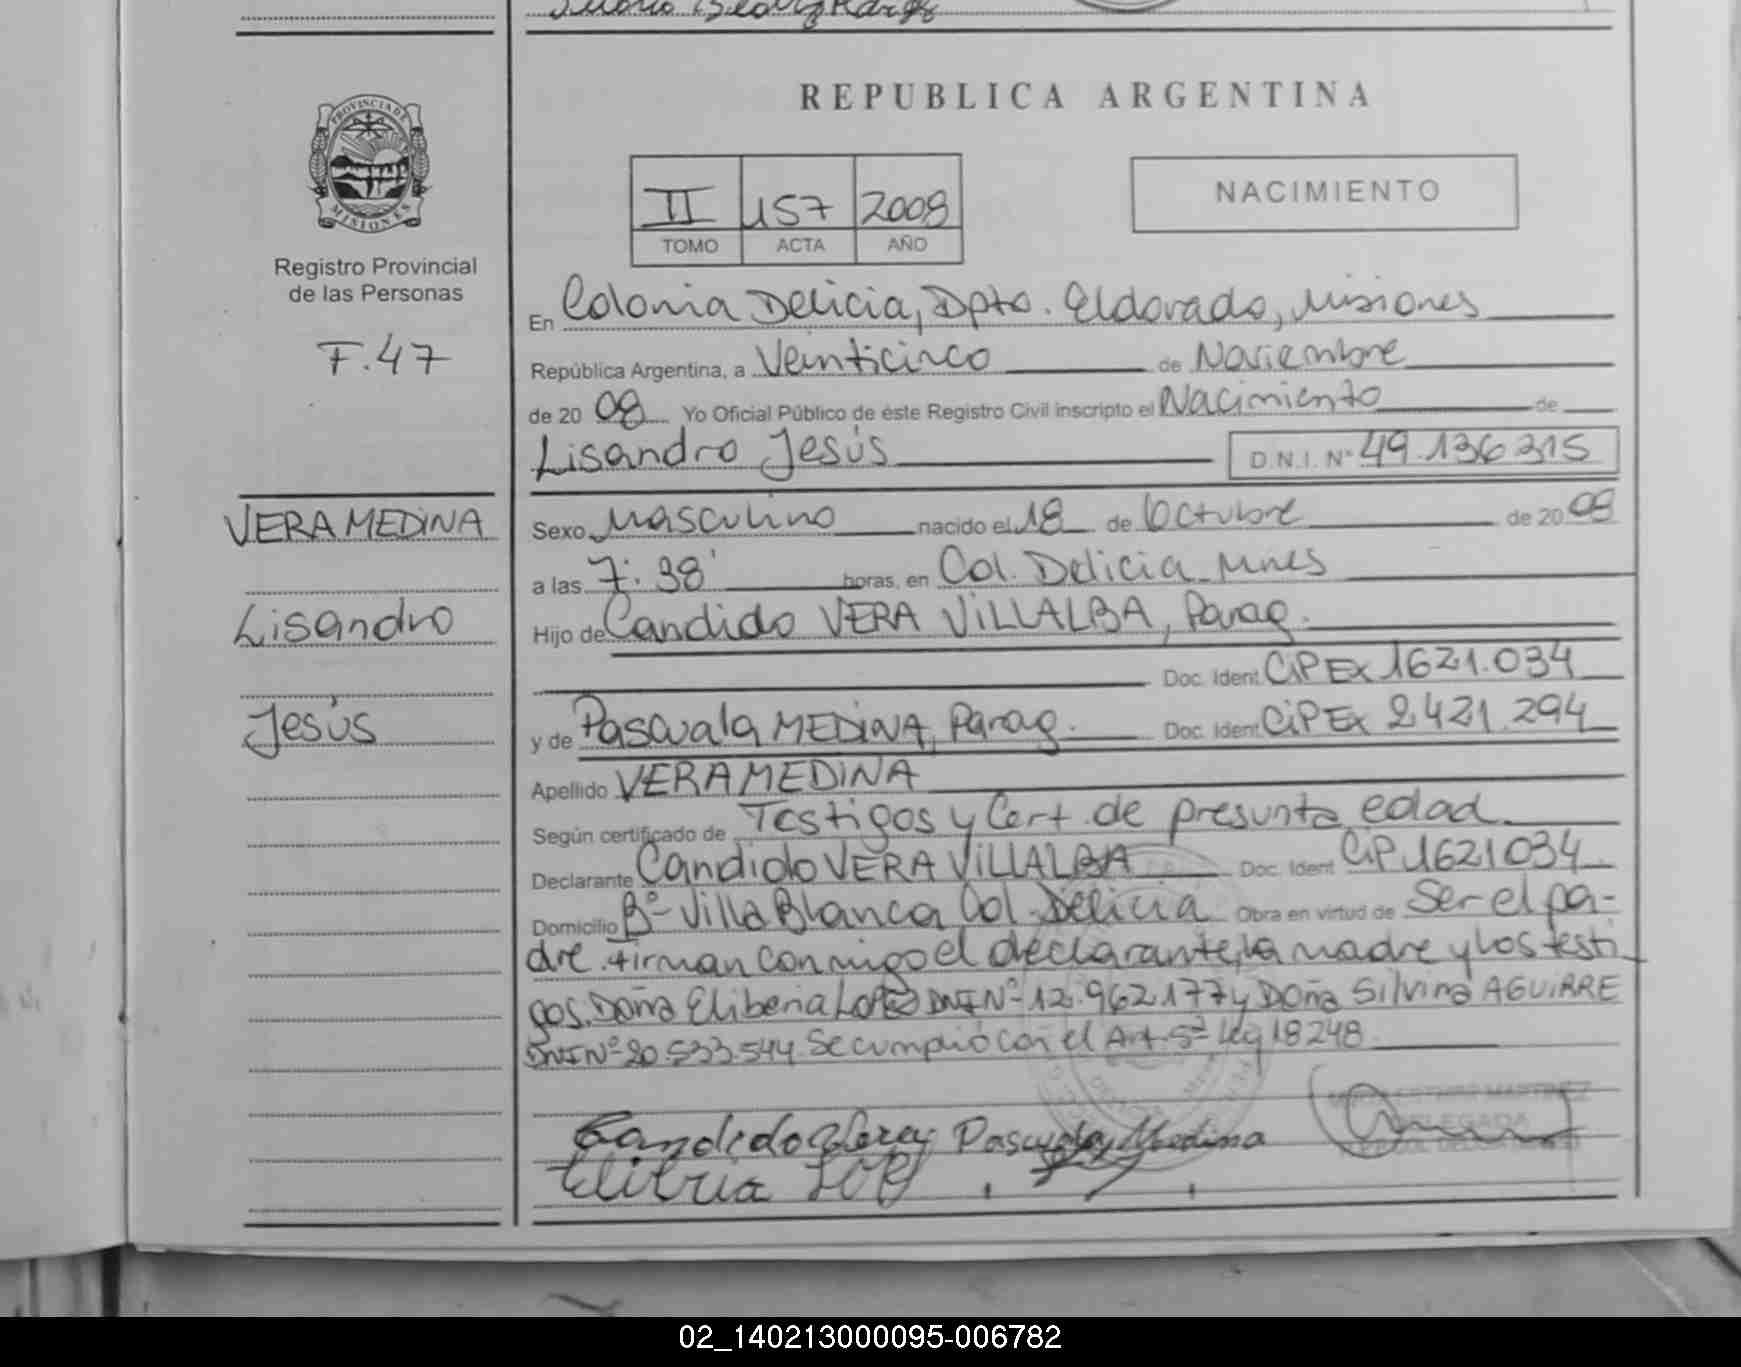 REPUBLICA ARGENTINA
PROVINCIA DE MISIONES
Registro Provincial
de las Personas
F.47
II 157 2008
TOMO ACTA AÑO
NACIMIENTO
En Colonia Delicia, Dpto. Eldorado, Misiones
República Argentina, a Veinticinco de Noviembre
de 2008 Yo Oficial Público de éste Registro Civil inscripto el Nacimiento de
Lisandro Jesús D.N.I. Nº 49.136315
VERA MEDINA
Lisandro
Jesús
Sexo Masculino nacido el 18 de Octubre de 2008
a las 7:38' horas, en Col. Delicia Mnes
Hijo de Candido VERA VILLALBA, Parag.
Doc. Ident. CiPEx 1621.034
y de Pascuala MEDINA, Parag. Doc. Ident. CiPEx 2421.294
Apellido VERA MEDINA
Según certificado de Testigos y Cert. de presunta edad
Declarante Candido VERA VILLALBA Doc. Ident CiP 1621034
Domicilio Bº Villa Blanca Col. Delicia Obra en virtud de Ser el pa-
dre. Firman conmigo el declarante, la madre y los testi
gos. Doña Eliberia LOPEZ DNI Nº 12.962.177 y Doña Silvina AGUIRRE
DNI Nº 20.533.544. Se cumplió con el Art. 5º Ley 18248.
Candido Vera Pascuala Medina
DELEGADA
02_140213000095-006782